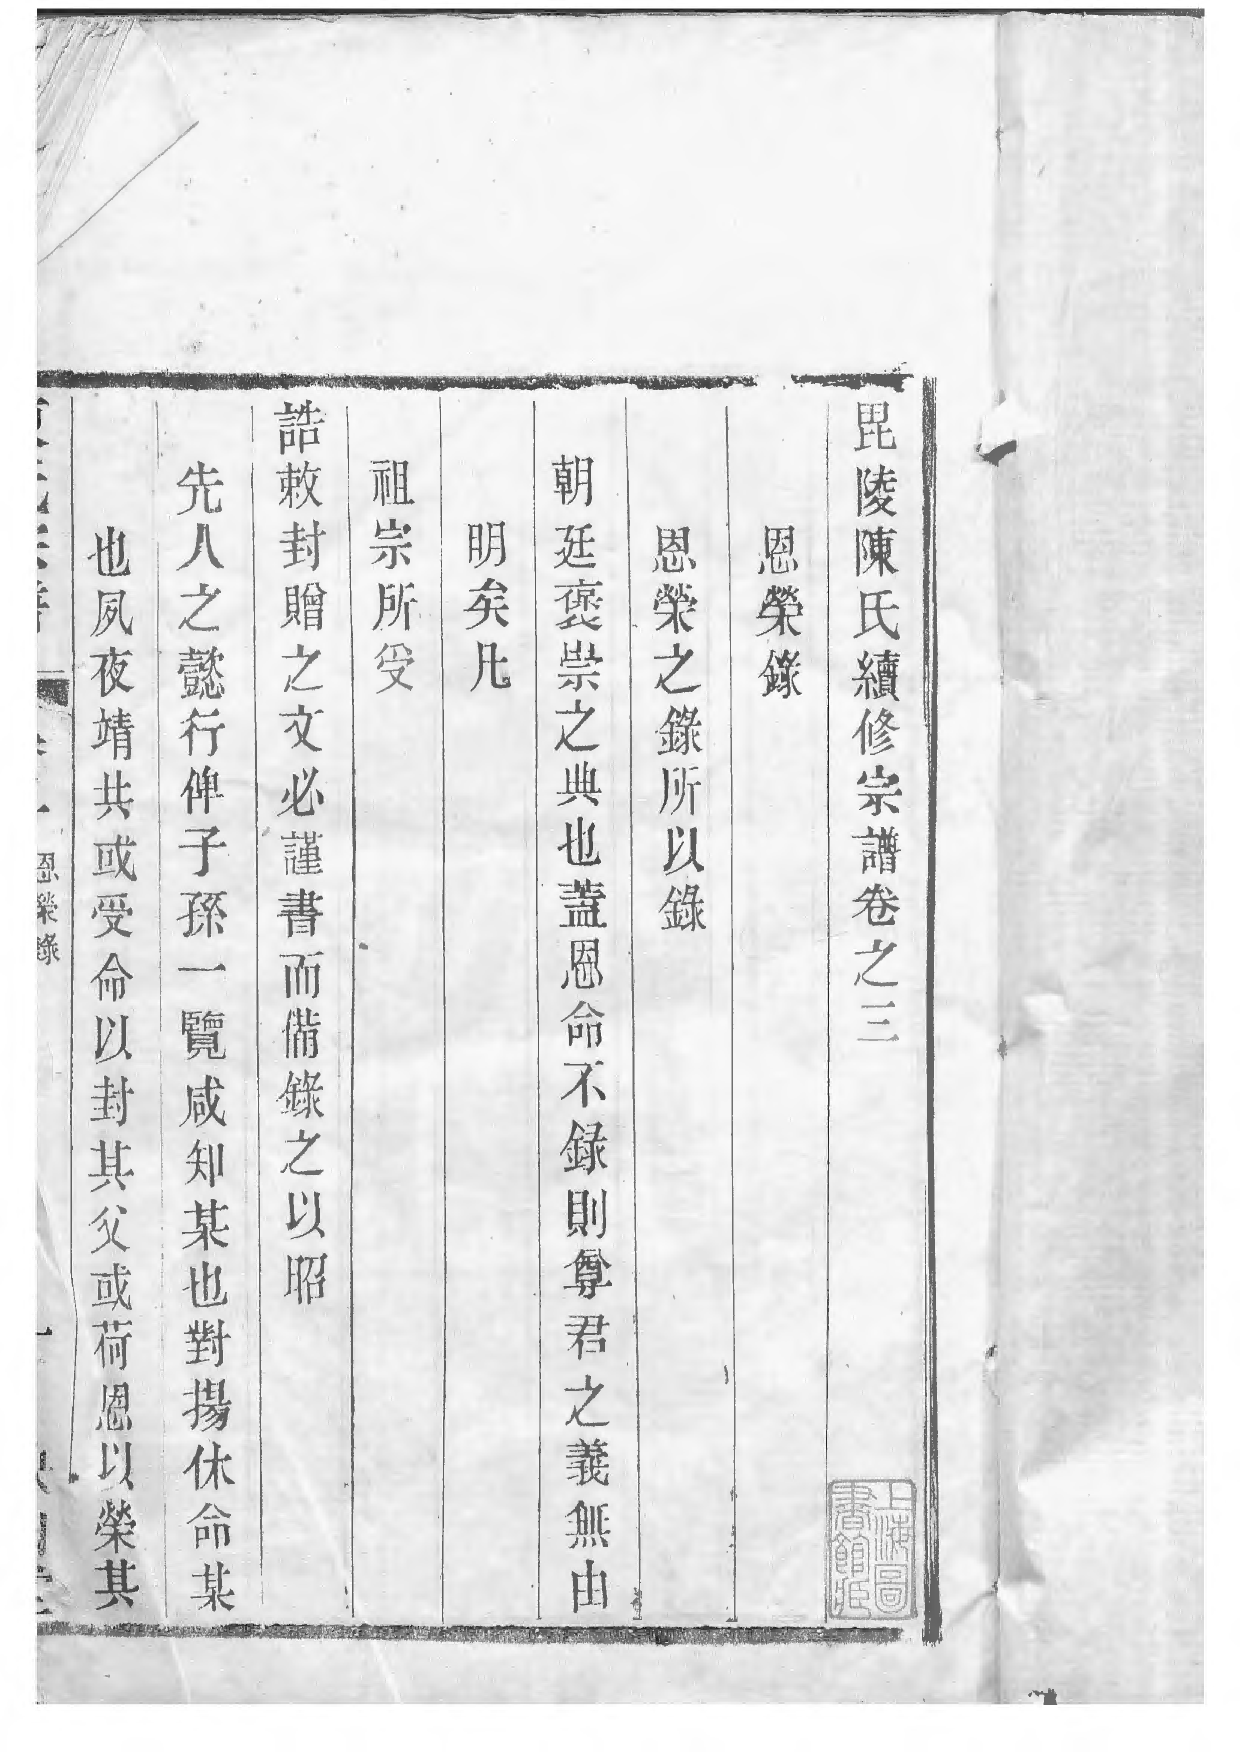 毘陵陳氏續修宗譜卷之三
恩榮錄
恩榮之錄所以錄
朝廷褒崇之典也蓋恩命不錄則尊君之義無由
明矣凡
祖宗所受
誥敕封贈之文必謹書而備錄之以昭
先人之懿行俾子孫一覽咸知某也對揚休命某
也夙夜靖共或受命以封其父或荷恩以榮其
恩榮錄
上海圖書館藏